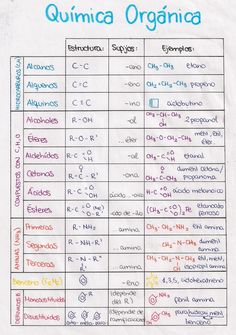 Química Orgánica
Estructura: Sufijos: Ejemplos:
HIDROCARBUROS (C,H)
Alcanos C-C -ano CH₃-CH₃ etano
Alquenos C=C -eno CH₂=CH₂-CH₃ propeno
Alquinos C≡C -ino ciclobutino
COMPUESTOS CON C,H,O
Alcoholes R-OH -ol CH₃-CH-CH₃ OH 2 propanol
Éteres R-O-R' ...éter CH₃-O-CH₂-CH₃ metil, etil, éter.
Aldehídos R-C O H -al CH₃-C O H etanal
Cetonas R-C-R' O -ona CH₃-C-CH₃ O dimetil cetona / propanona
Ácidos R-C O OH ácido -oico H-C O OH ácido metanoico
Ésteres R-C O O-R' -ato de -ilo
AMINAS (NH₂)
Primarias R-NH₂ ...amina CH₃-NH₂ metil amina
Segundas R-NH-R' ...amina CH₃-N-CH₃ H dimetil amina
Terceras R-N-R' ...amina
Benceno (C₆H₆) ...eno
Monosustituidos (depende del R) fenil amina
Disustituidos orto, meta, para (depende de ramificaciones)